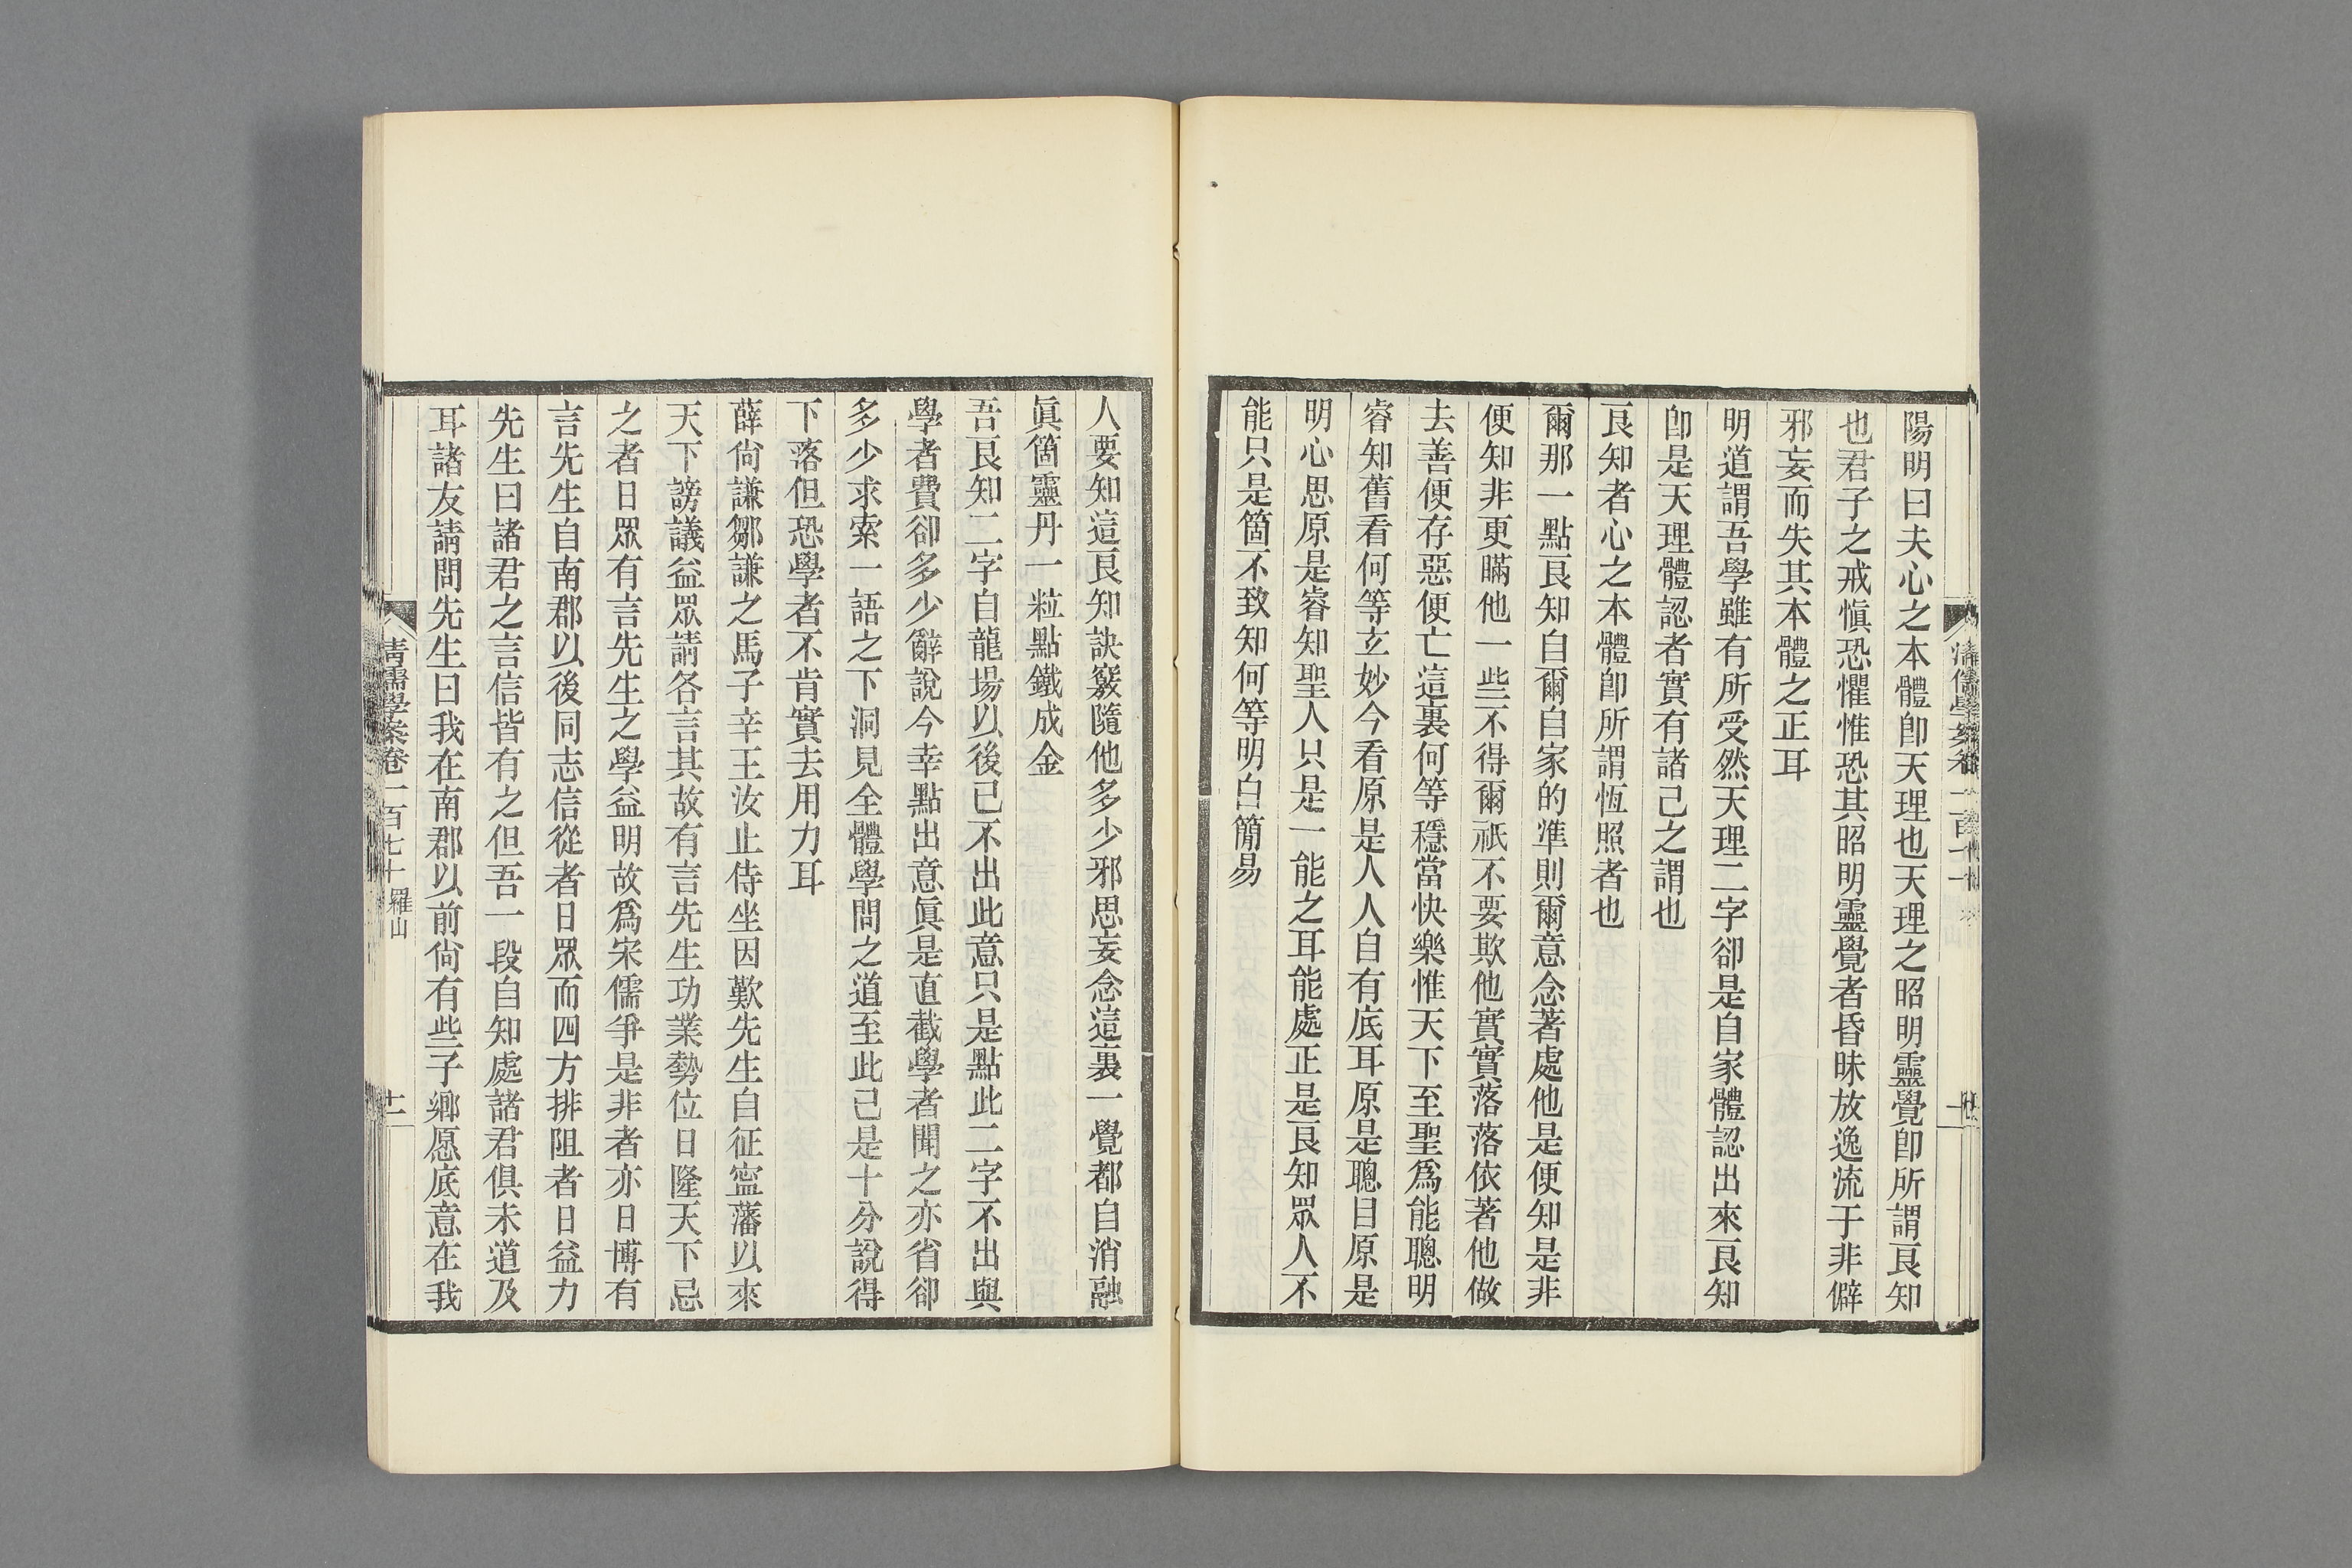 陽明曰夫心之本體卽天理也天理之昭明靈覺卽所謂良知
也君子之戒愼恐懼惟恐其昭明靈覺者昏昧放逸流于非僻
邪妄而失其本體之正耳
明道謂吾學雖有所受然天理二字卻是自家體認出來良知
卽是天理體認者實有諸己之謂也
良知者心之本體卽所謂恆照者也
爾那一點良知自爾自家的準則爾意念著處他是便知是非
便知非更瞞他一些不得爾祇不要欺他實實落落依著他做
去善便存惡便亡這裏何等穩當快樂惟天下至聖爲能聰明
睿知舊看何等玄妙今看原是人人自有底耳原是聰目原是
明心思原是睿知聖人只是一能之耳能處正是良知眾人不
能只是箇不致知何等明白簡易
人要知這良知訣竅隨他多少邪思妄念這裏一覺都自消融
眞箇靈丹一粒點鐵成金
吾良知二字自龍場以後已不出此意只是點此二字不出與
學者費卻多少辭說今幸點出意眞是直截學者聞之亦省卻
多少求索一語之下洞見全體學問之道至此已是十分說得
下落但恐學者不肯實去用力耳
薛尙謙鄒謙之馬子莘王汝止侍坐因歎先生自征寧藩以來
天下謗議益眾請各言其故有言先生功業勢位日隆天下忌
之者日眾有言先生之學益明故爲宋儒爭是非者亦日博有
言先生自南郡以後同志信從者日眾而四方排阻者日益力
先生曰諸君之言信皆有之但吾一段自知處諸君俱未道及
耳諸友請問先生曰我在南郡以前尙有些子鄕愿底意在我
清儒學案卷一百七十 羅山
十二